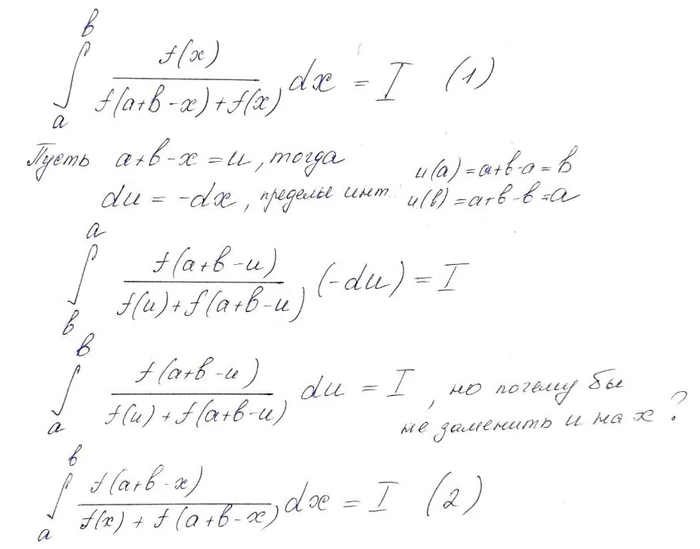 ∫_a^b f(x)/(f(a+b-x)+f(x)) dx = I (1)
Пусть a+b-x=u, тогда u(a)=a+b-a=b
du = -dx, пределы инт. u(b)=a+b-b=a
∫_b^a f(a+b-u)/(f(u)+f(a+b-u)) (-du) = I
∫_a^b f(a+b-u)/(f(u)+f(a+b-u)) du = I, но почему бы
не заменить u на x?
∫_a^b f(a+b-x)/(f(x)+f(a+b-x)) dx = I (2)